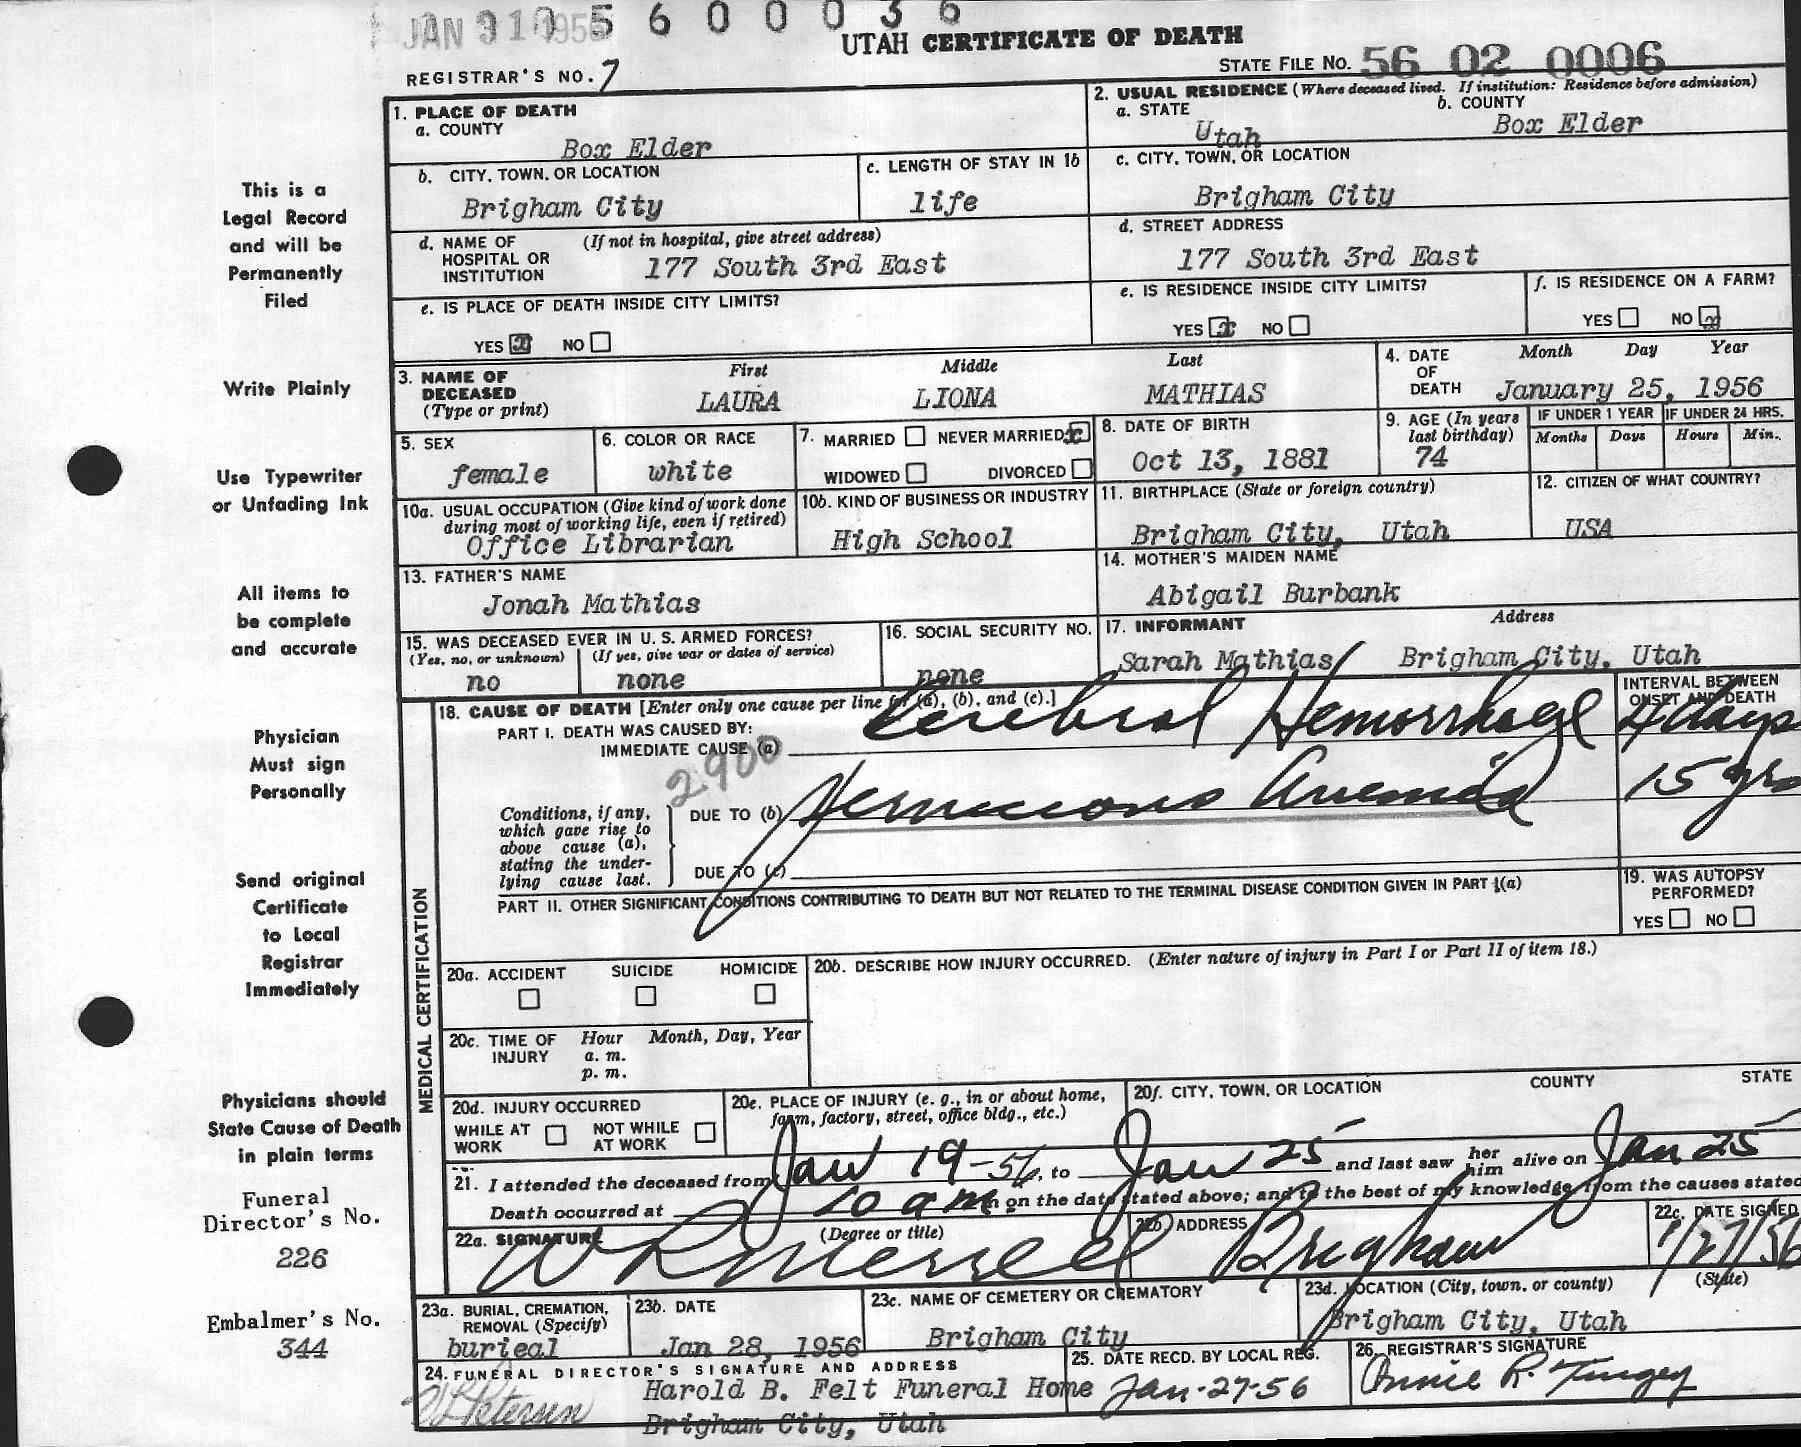 JAN 31 1956 5 6 0 0 0 3 6
UTAH CERTIFICATE OF DEATH
REGISTRAR'S NO. 7
STATE FILE NO. 56 02 0006
1. PLACE OF DEATH
a. COUNTY
Box Elder
2. USUAL RESIDENCE (Where deceased lived. If institution: Residence before admission)
a. STATE b. COUNTY
Utah Box Elder
b. CITY, TOWN, OR LOCATION
Brigham City
c. LENGTH OF STAY IN 1b
life
c. CITY, TOWN, OR LOCATION
Brigham City
d. NAME OF HOSPITAL OR INSTITUTION (If not in hospital, give street address)
177 South 3rd East
d. STREET ADDRESS
177 South 3rd East
e. IS PLACE OF DEATH INSIDE CITY LIMITS?
YES x NO
e. IS RESIDENCE INSIDE CITY LIMITS?
YES x NO
f. IS RESIDENCE ON A FARM?
YES NO x
3. NAME OF DECEASED (Type or print)
First Middle Last
LAURA LIONA MATHIAS
4. DATE OF DEATH
Month Day Year
January 25, 1956
5. SEX
female
6. COLOR OR RACE
white
7. MARRIED NEVER MARRIED x
WIDOWED DIVORCED
8. DATE OF BIRTH
Oct 13, 1881
9. AGE (In years last birthday)
74
IF UNDER 1 YEAR
Months Days
IF UNDER 24 HRS.
Hours Min.
10a. USUAL OCCUPATION (Give kind of work done during most of working life, even if retired)
Office Librarian
10b. KIND OF BUSINESS OR INDUSTRY
High School
11. BIRTHPLACE (State or foreign country)
Brigham City, Utah
12. CITIZEN OF WHAT COUNTRY?
USA
13. FATHER'S NAME
Jonah Mathias
14. MOTHER'S MAIDEN NAME
Abigail Burbank
15. WAS DECEASED EVER IN U. S. ARMED FORCES?
(Yes, no, or unknown) (If yes, give war or dates of service)
no none
16. SOCIAL SECURITY NO.
none
17. INFORMANT Address
Sarah Mathias Brigham City, Utah
MEDICAL CERTIFICATION
18. CAUSE OF DEATH [Enter only one cause per line for (a), (b), and (c).]
INTERVAL BETWEEN ONSET AND DEATH
PART I. DEATH WAS CAUSED BY:
IMMEDIATE CAUSE (a) Cerebral Hemorrhage 4 days
2900
Conditions, if any, which gave rise to above cause (a), stating the underlying cause last.
DUE TO (b) Pernicious Anemia 15 yrs
DUE TO (c)
PART II. OTHER SIGNIFICANT CONDITIONS CONTRIBUTING TO DEATH BUT NOT RELATED TO THE TERMINAL DISEASE CONDITION GIVEN IN PART I(a)
19. WAS AUTOPSY PERFORMED?
YES NO
20a. ACCIDENT SUICIDE HOMICIDE
20b. DESCRIBE HOW INJURY OCCURRED. (Enter nature of injury in Part I or Part II of item 18.)
20c. TIME OF INJURY Hour Month, Day, Year
a. m.
p. m.
20d. INJURY OCCURRED
WHILE AT WORK NOT WHILE AT WORK
20e. PLACE OF INJURY (e. g., in or about home, farm, factory, street, office bldg., etc.)
20f. CITY, TOWN, OR LOCATION COUNTY STATE
21. I attended the deceased from Jan 19-56, to Jan 25 and last saw her him alive on Jan 25
Death occurred at 10 a m on the date stated above; and to the best of my knowledge, from the causes stated
22a. SIGNATURE (Degree or title)
W R Merrell
22b. ADDRESS
Brigham
22c. DATE SIGNED
1/27/56
23a. BURIAL, CREMATION, REMOVAL (Specify)
burieal
23b. DATE
Jan 28, 1956
23c. NAME OF CEMETERY OR CREMATORY
Brigham City
23d. LOCATION (City, town, or county) (State)
Brigham City, Utah
24. FUNERAL DIRECTOR'S SIGNATURE AND ADDRESS
Harold B. Felt Funeral Home
Brigham City, Utah
25. DATE RECD. BY LOCAL REG.
Jan-27-56
26. REGISTRAR'S SIGNATURE
Annie R. Tingey
This is a
Legal Record
and will be
Permanently
Filed
Write Plainly
Use Typewriter
or Unfading Ink
All items to
be complete
and accurate
Physician
Must sign
Personally
Send original
Certificate
to Local
Registrar
Immediately
Physicians should
State Cause of Death
in plain terms
Funeral
Director's No.
226
Embalmer's No.
344